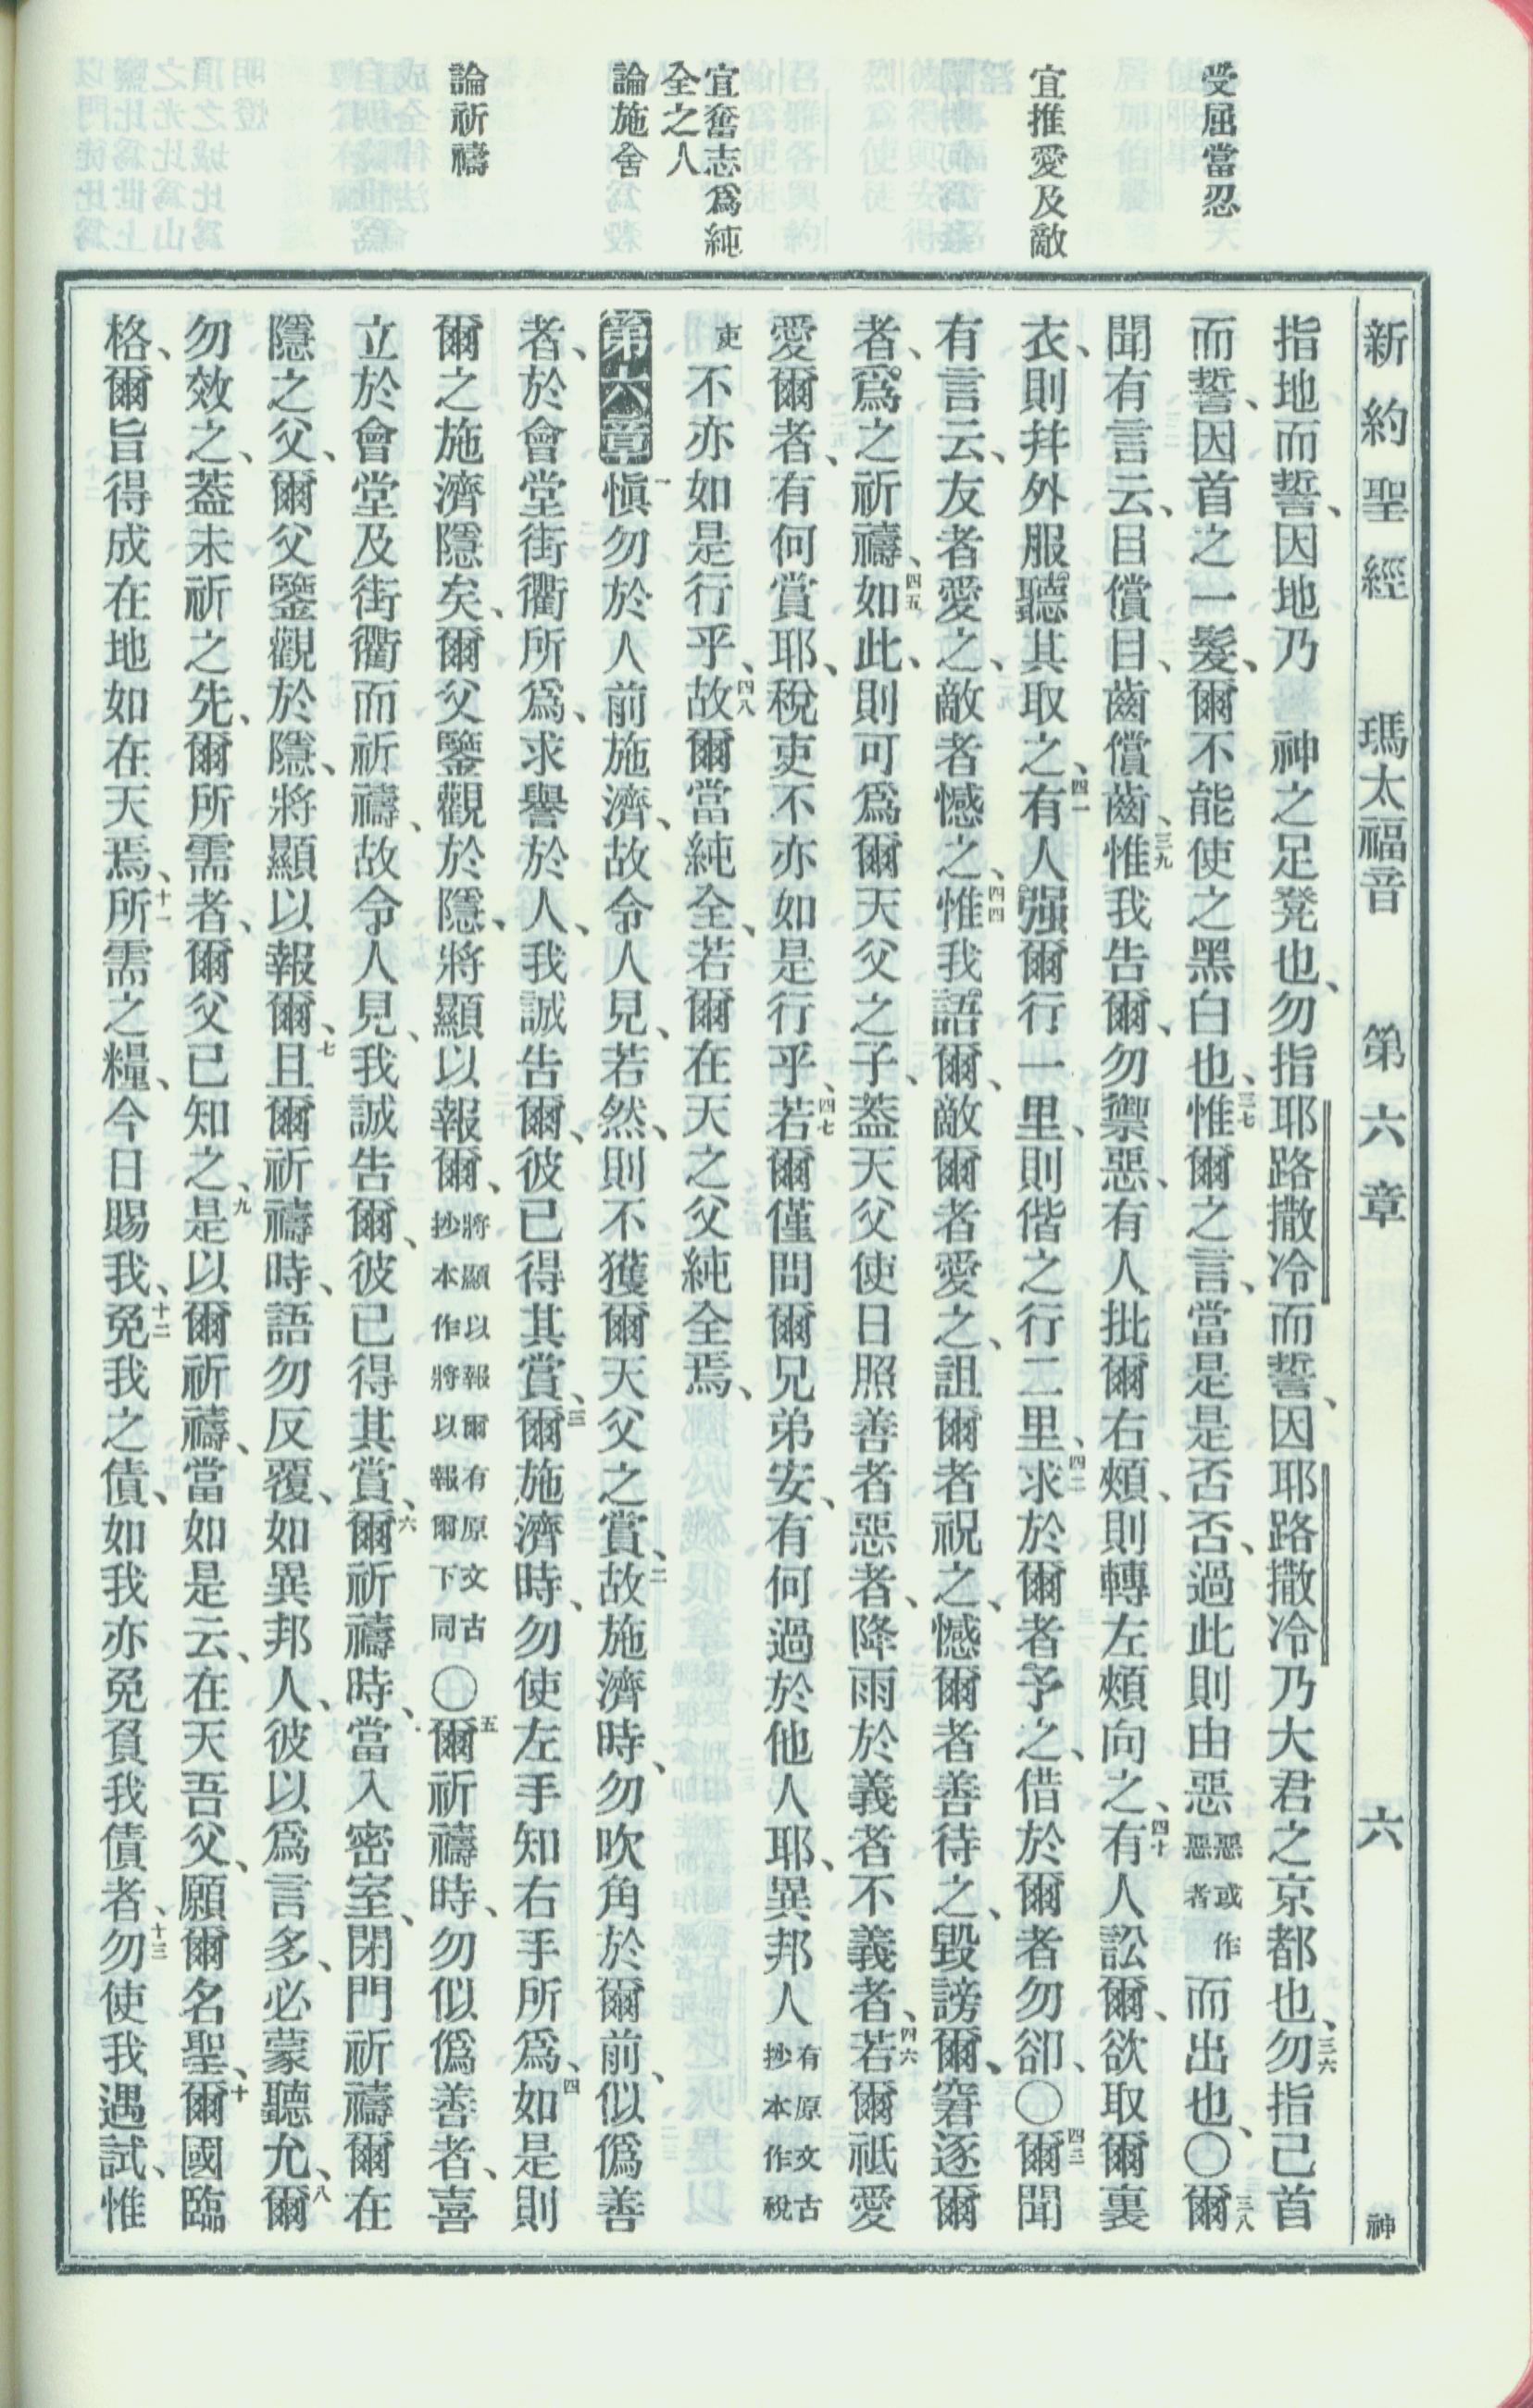 新約聖經　瑪太福音　第六章　六　神
受屈當忍
宜推愛及敵
宜奮志爲純
全之人
論施舍
論祈禱
指地而誓、因地乃　神之足凳也、勿指耶路撒冷而誓、因耶路撒冷乃大君之京都也、三六勿指己首
而誓、因首之一髮、爾不能使之黑白也、三七惟爾之言、當是是否否、過此則由惡惡或作惡者而出也、〇三八爾
聞有言云、目償目、齒償齒、三九惟我告爾、勿禦惡、有人批爾右頰、則轉左頰向之、四十有人訟爾、欲取爾裏
衣、則幷外服聽其取之、四一有人强爾行一里、則偕之行二里、四二求於爾者予之、借於爾者勿卻、〇四三爾聞
有言云、友者愛之、敵者憾之、四四惟我語爾、敵爾者愛之、詛爾者祝之、憾爾者善待之、毀謗爾、窘逐爾
者、爲之祈禱、四五如此、則可爲爾天父之子、蓋天父使日照善者惡者、降雨於義者不義者、四六若爾祇愛
愛爾者、有何賞耶、稅吏不亦如是行乎、四七若爾僅問爾兄弟安、有何過於他人耶、異邦人有原文古抄本作稅
吏不亦如是行乎、四八故爾當純全、若爾在天之父純全焉、
第六章 一愼勿於人前施濟、故令人見、若然、則不獲爾天父之賞、二故施濟時、勿吹角於爾前、似僞善
者、於會堂街衢所爲、求譽於人、我誠告爾、彼已得其賞、三爾施濟時、勿使左手知右手所爲、四如是則
爾之施濟隱矣、爾父鑒觀於隱、將顯以報爾、將顯以報爾有原文古抄本作將以報爾下同〇五爾祈禱時、勿似僞善者、喜
立於會堂及街衢而祈禱、故令人見、我誠告爾、彼已得其賞、六爾祈禱時、當入密室、閉門祈禱爾在
隱之父、爾父鑒觀於隱、將顯以報爾、七且爾祈禱時、語勿反覆、如異邦人、彼以爲言多、必蒙聽允、八爾
勿效之、蓋未祈之先、爾所需者、爾父已知之、九是以爾祈禱、當如是云、在天吾父、願爾名聖、十爾國臨
格、爾旨得成在地如在天焉、十一所需之糧、今日賜我、十二免我之債、如我亦免負我債者、十三勿使我遇試、惟